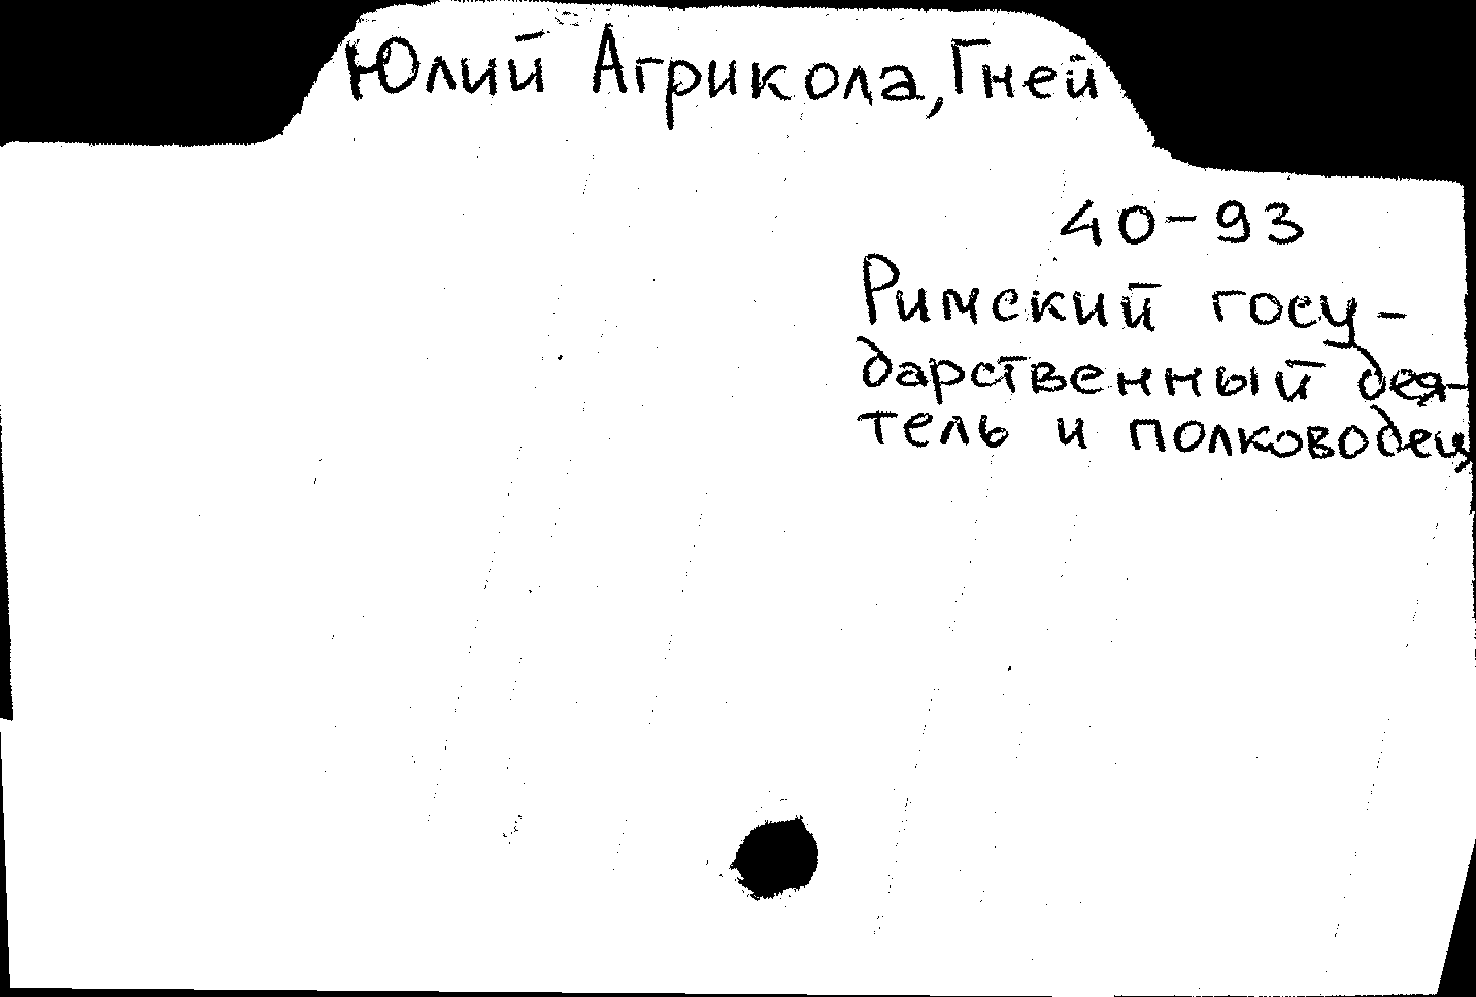 Юлий Агрикола, Гней
40-93
Римский госу-
дарственный дея-
тель и полководец